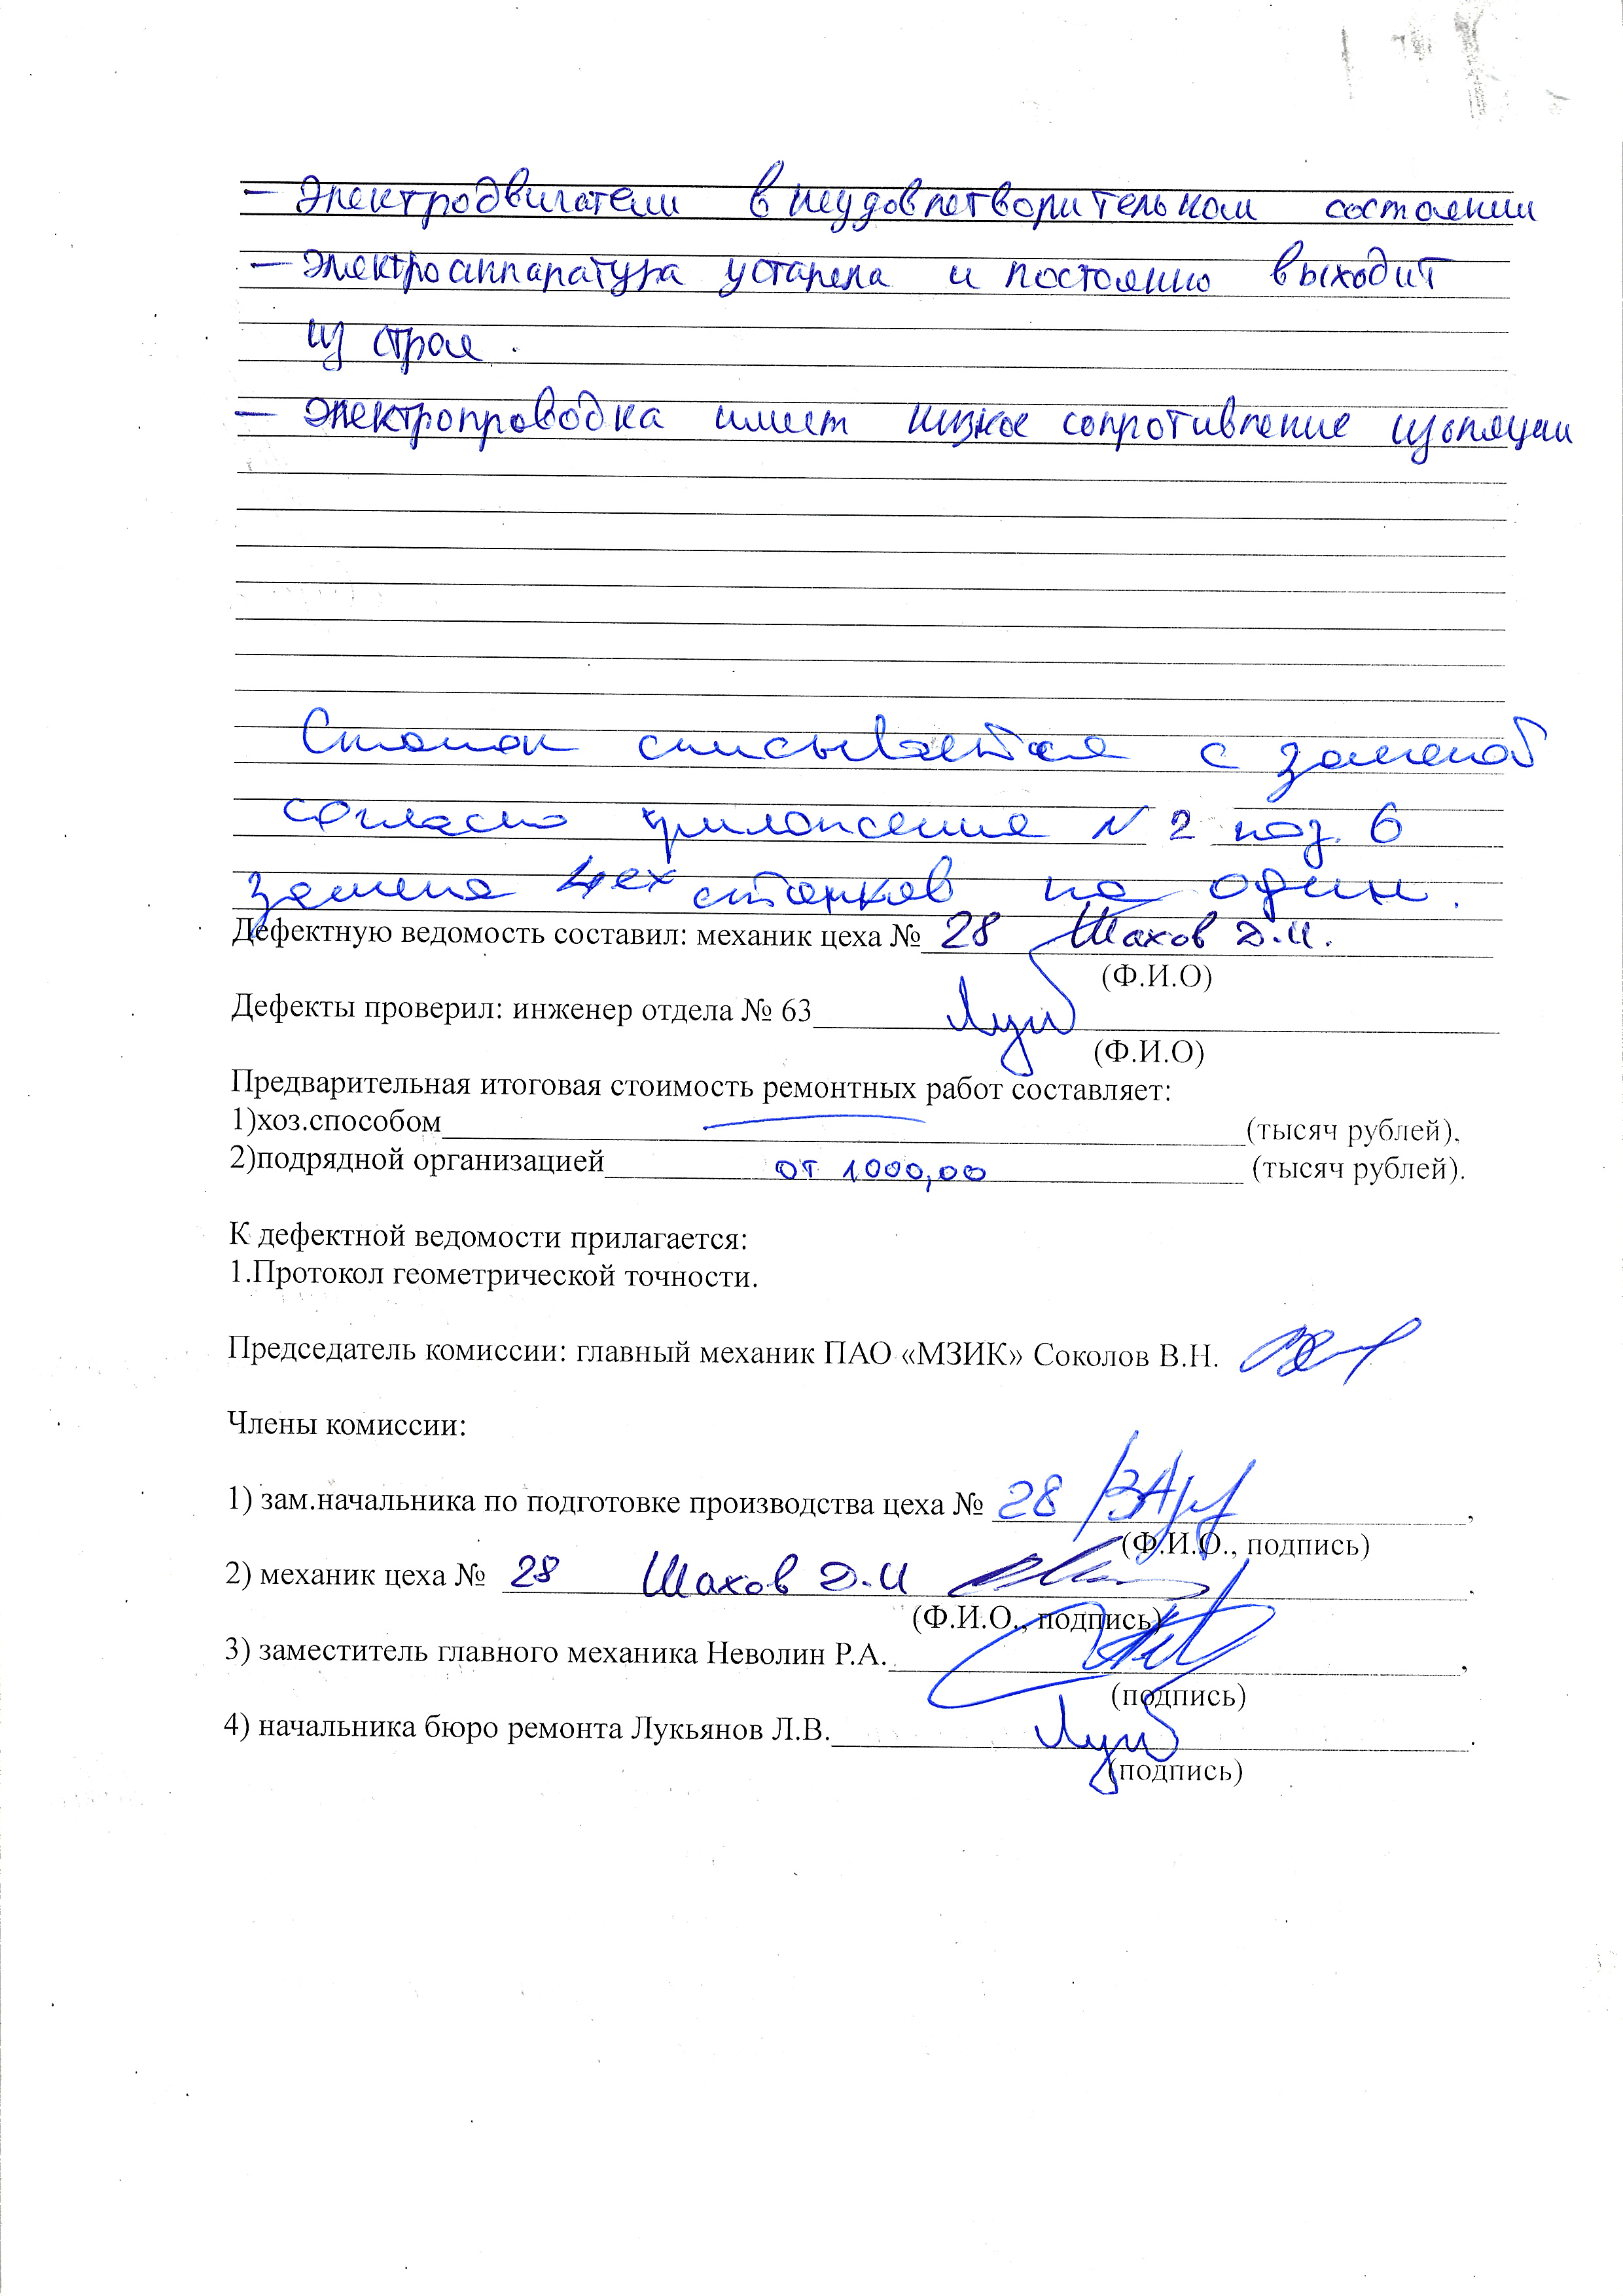 — Электродвигатели в неудовлетворительном состоянии
— Электроаппаратура устарела и постоянно выходит
из строя.
— Электропроводка имеет низкое сопротивление изоляции
Станок списывается с заменой
согласно приложения N 2 поз. 6
замена 4ех станков на один.
Дефектную ведомость составил: механик цеха № 28 Шахов Д.И.
(Ф.И.О)
Дефекты проверил: инженер отдела № 63
(Ф.И.О)
Предварительная итоговая стоимость ремонтных работ составляет:
1)хоз.способом — (тысяч рублей).
2)подрядной организацией от 1000,00 (тысяч рублей).
К дефектной ведомости прилагается:
1.Протокол геометрической точности.
Председатель комиссии: главный механик ПАО «МЗИК» Соколов В.Н.
Члены комиссии:
1) зам.начальника по подготовке производства цеха № 28 ,
(Ф.И.О., подпись)
2) механик цеха № 28 Шахов Д.И .
(Ф.И.О., подпись)
3) заместитель главного механика Неволин Р.А. ,
(подпись)
4) начальника бюро ремонта Лукьянов Л.В. .
(подпись)